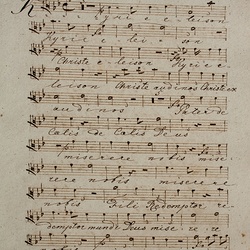 Kyrie e leison
Kyrie e lei son
Christe e leison Kyrie e
leison Christe audi nos Christe ex
audi nos Pater de
Calis de Calis Deus
miserere nobis mise
rere nobis miserere
nobis Fili Redemptor re
demptor mundi Deus mise re re